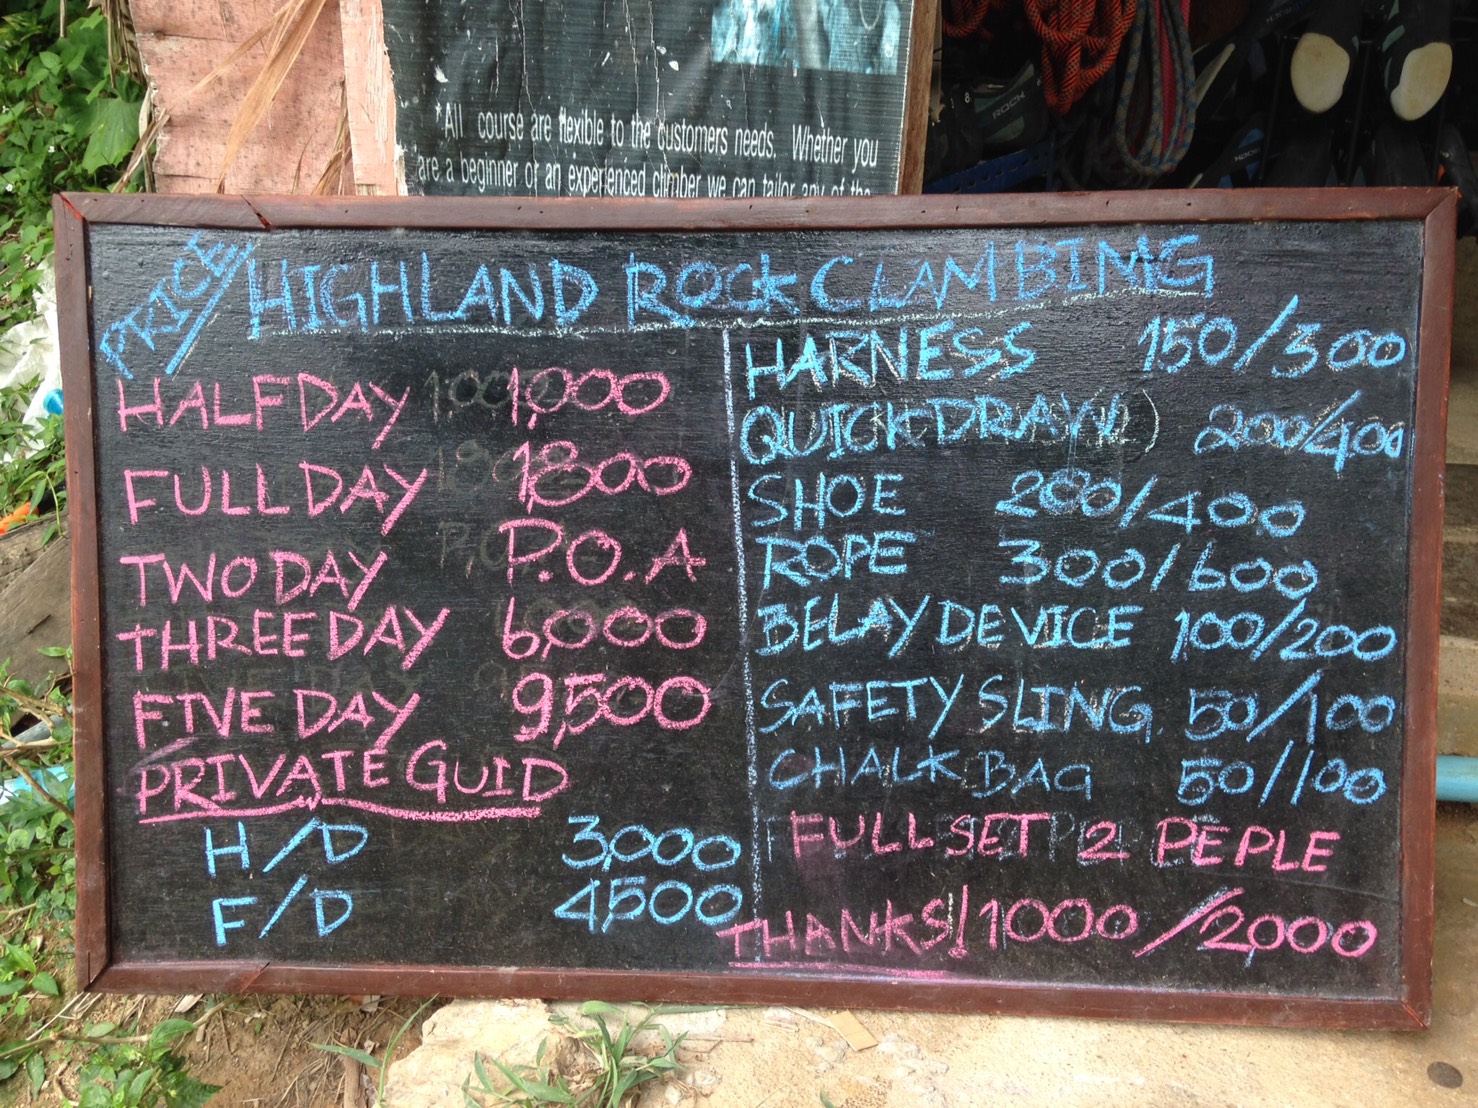 *All course are flexible to the customers needs. Whether you
are a beginner or an experienced climber we can tailor any of the
PRICE
HIGHLAND ROCK CLAMBING
HALF DAY 1,000
FULL DAY 1,800
TWO DAY P.O.A
THREE DAY 6,000
FIVE DAY 9,500
PRIVATE GUID
H/D 3,000
F/D 4,500
HARNESS 150/300
QUICKDRAW(12) 200/400
SHOE 200/400
ROPE 300/600
BELAY DEVICE 100/200
SAFETY SLING. 50/100
CHALK BAG 50/100
FULL SET 2 PEPLE
THANKS! 1000/2,000
ROCK